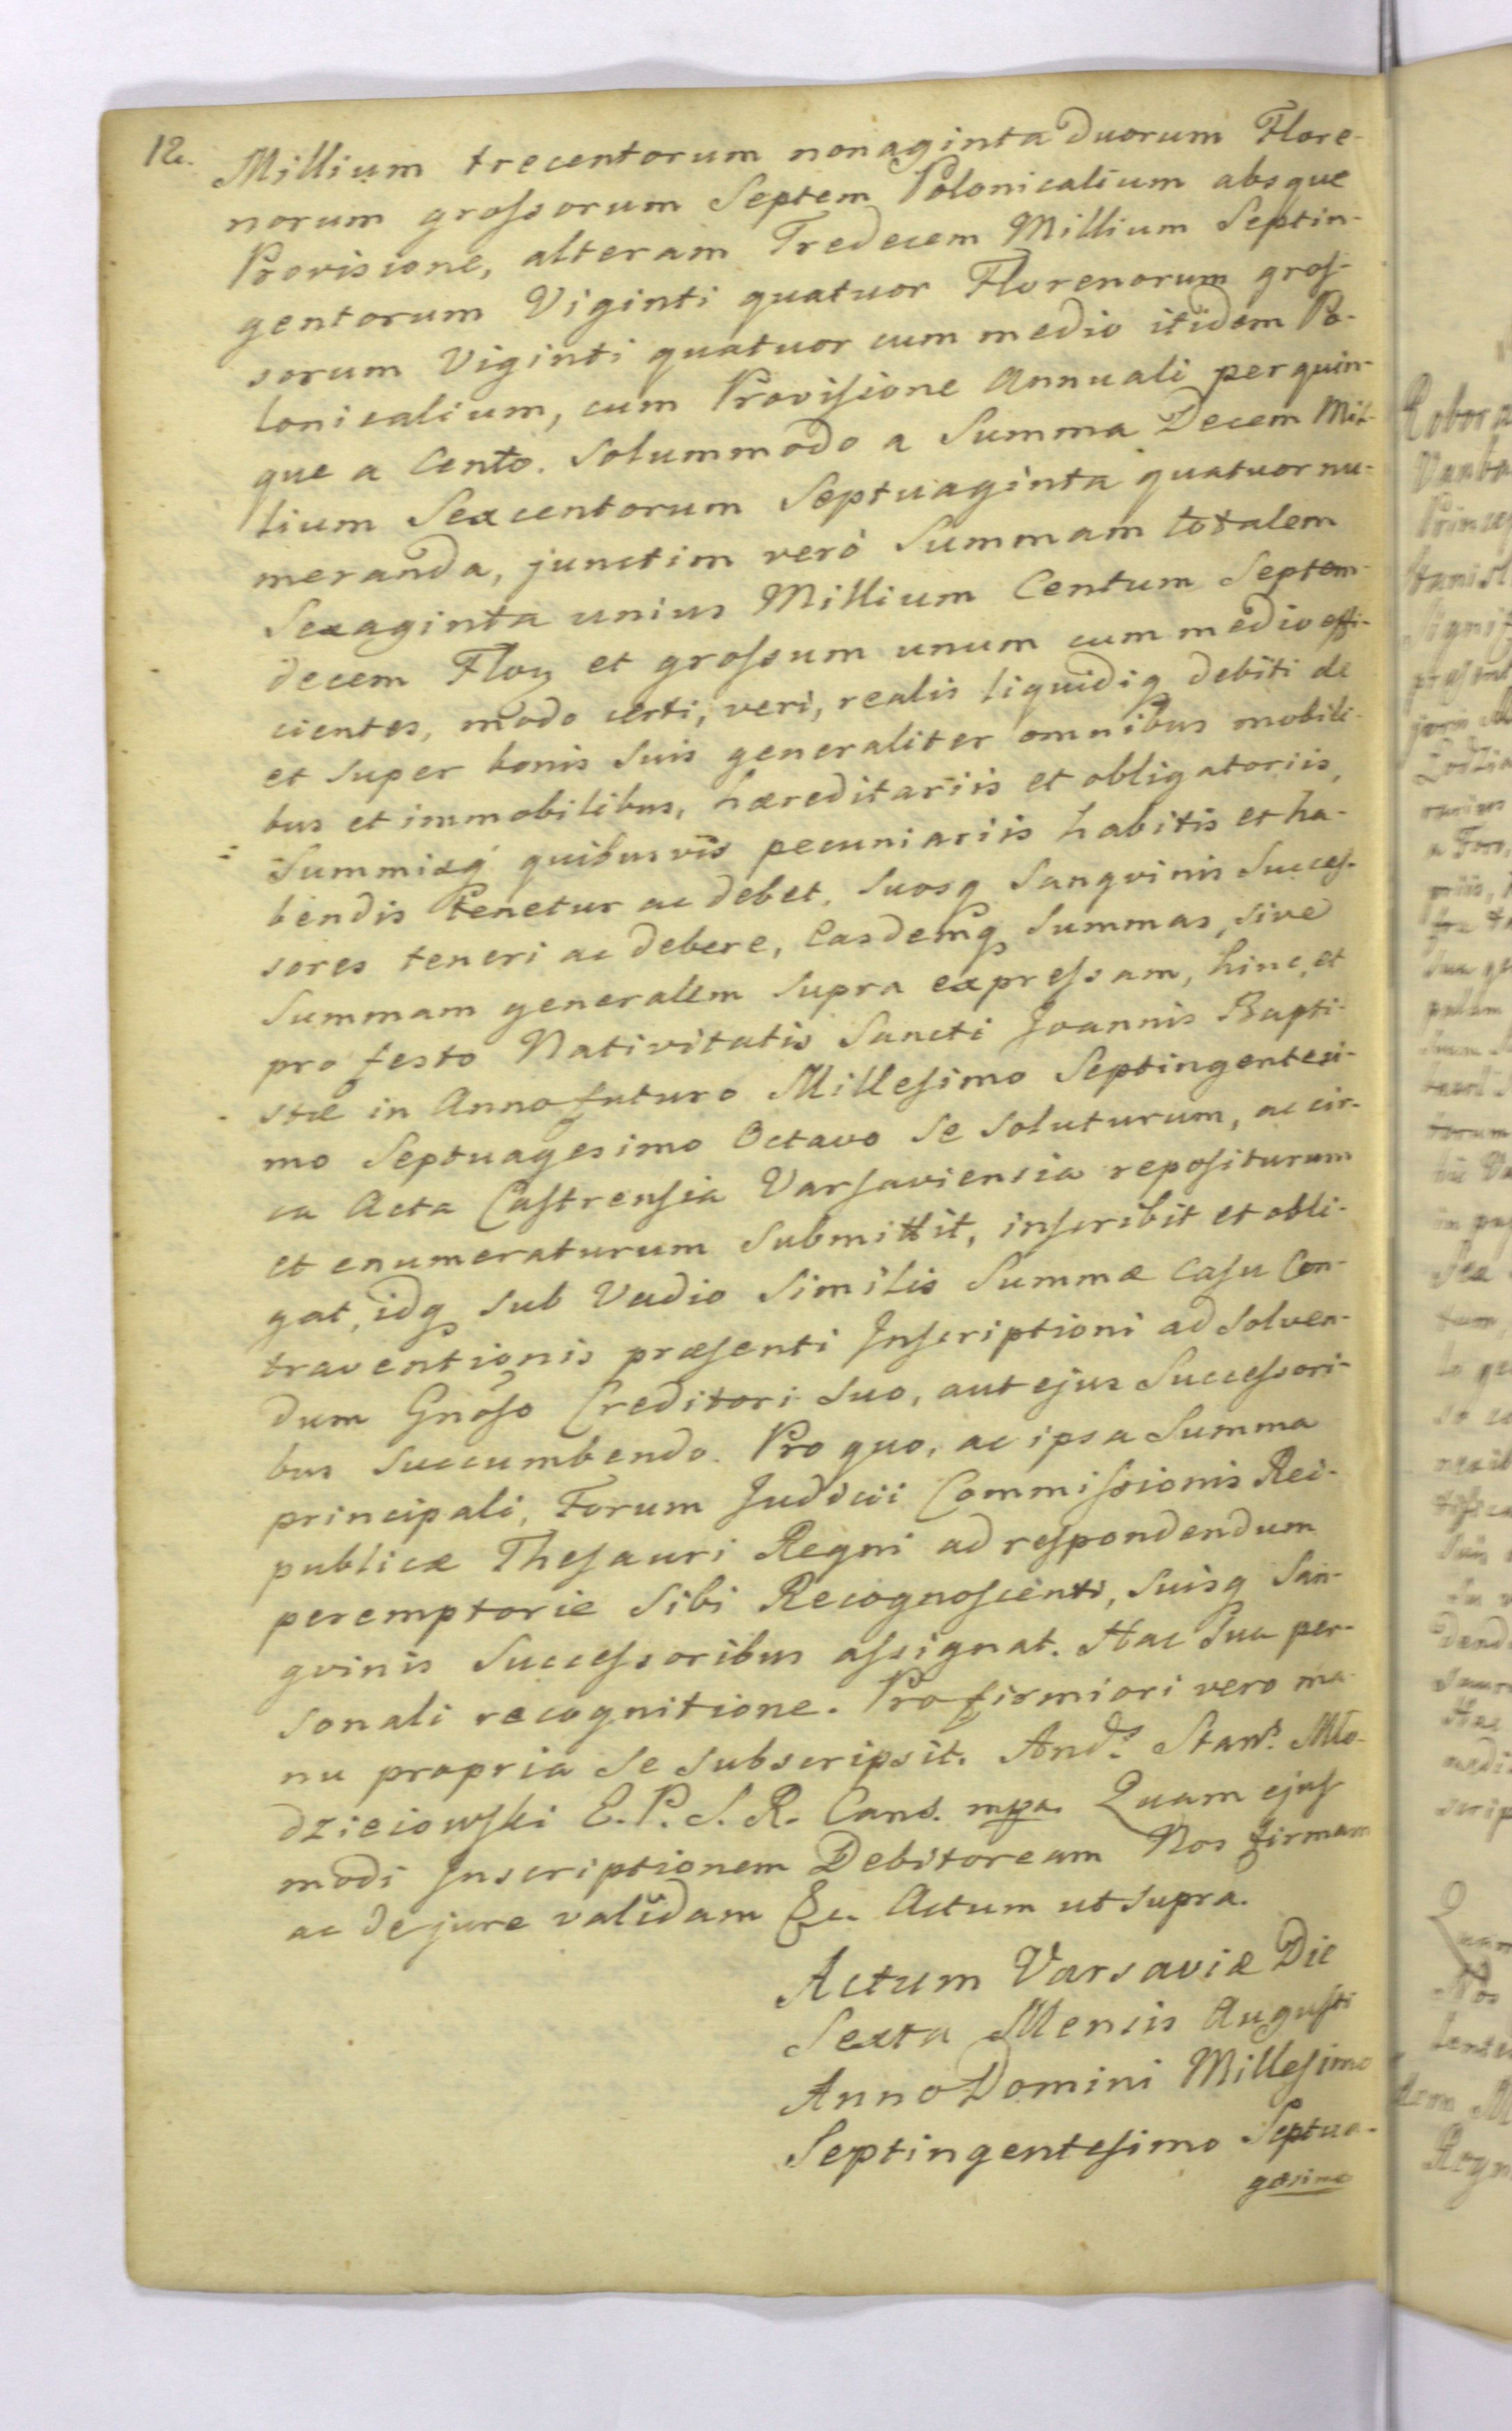 12.
Millium trecentorum nonaginta duorum Flore-
norum groſsorum Septem Polonicalium absque
Provisione, alteram Tredecem Millium Septin-
gentorum Viginti quatuor Florenorum groſ-
sorum Viginti quatuor cum medio itidem Po-
lonicalium, cum Proviſione Annuali per quin-
que a Cento. Solummodo a Summa Decem Mil-
lium Sexcentorum Septuaginta quatuor nu-
meranda, junctim verò Summam totalem
Sexaginta unius Millium Centum Septem-
decem Floꝝ et groſsum unum cum medio effi-
cientes, modo certi, veri, realis liquidiq debiti de
et super bonis suis generaliter omnibus mobili-
bus et immobilibus, hæreditariis et obligatoriis,
Summisq quibusvis pecuniariis habitis et ha-
bendis tenetur ac debet, Suosq Sangvinis Succeſ-
sores teneri ac debere, Easdemq Summas, sive
Summam generalem supra expreſsam, hinc, et
pro festo Nativitatis Sancti Joannis Bapti-
stæ in Anno futuro Milleſimo Septingentesi-
mo Septuagesimo Octavo se soluturum, ac cir-
ca Acta Caſtrenſia Varſaviensia repoſiturum
et enumeraturum submittit, inſcribit et obli-
gat, idq sub Vadio similis Summæ caſu Con-
traventionis præſenti Inſcriptioni ad solven-
dum Gnoſo Creditori suo, aut ejus Succeſsori-
bus succumbendo. Pro quo, ac ipsa Summa
principali, Forum Judicii Commiſsionis Rei-
publicæ Theſauri Regni ad reſpondendum
peremptorie sibi Recognoſcenti, suisq San-
gvinis Succeſsoribus aſsignat. Hac sua per-
sonali recognitione. Pro firmiori vero ma-
nu propria se subscripsit. Andˢ. Stanˢ. Mło-
dzieiowſki E. P. S. R. Canc. mpa. Quam ejuſ
modi Inscriptionem Debitoream Nos firmam
ac de jure validam &c. Actum ut supra.
Actum Varsaviæ Die
Sexta Mensis Auguſti
Anno Domini Milleſimo
Septingenteſimo Septua-
gesimo